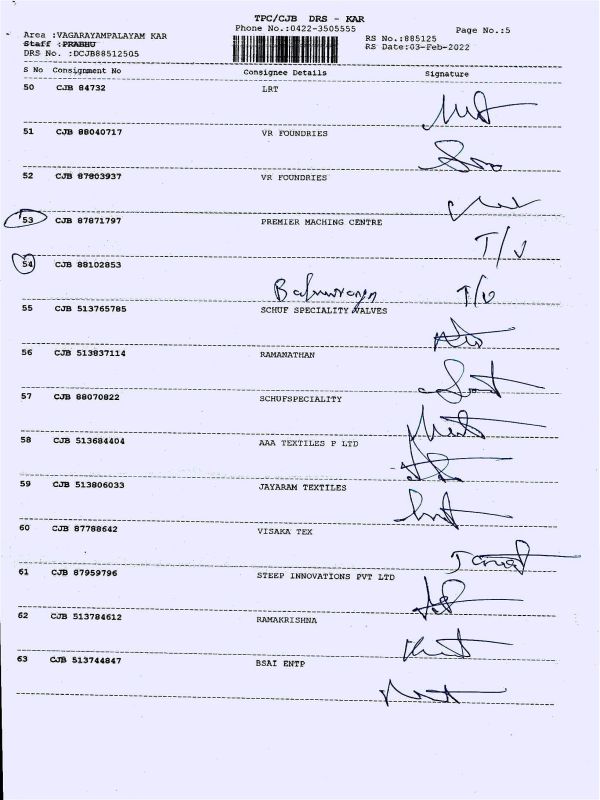 TPC/CJB DRS - KAR
Phone No.:0422-3505555 Page No.:5
Area :VAGARAYAMPALAYAM KAR RS No.:885125
Staff :PRABHU RS Date:03-Feb-2022
DRS No. :DCJB88512505
S No Consignment No Consignee Details Signature
50 CJB 84732 LRT
51 CJB 88040717 VR FOUNDRIES
52 CJB 87803937 VR FOUNDRIES
53 CJB 87871797 PREMIER MACHING CENTRE
T/V
54 CJB 88102853
T/V
55 CJB 513765785 SCHUF SPECIALITY VALVES
56 CJB 513837114 RAMANATHAN
57 CJB 88070822 SCHUFSPECIALITY
58 CJB 513684404 AAA TEXTILES P LTD
59 CJB 513806033 JAYARAM TEXTILES
60 CJB 87788642 VISAKA TEX
61 CJB 87959796 STEEP INNOVATIONS PVT LTD
62 CJB 513784612 RAMAKRISHNA
63 CJB 513744847 BSAI ENTP